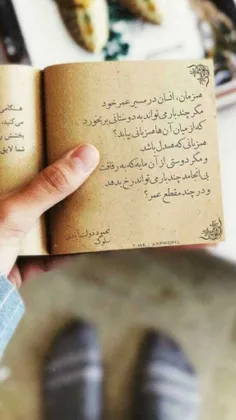 همزمان، انسان در مسیر عمر خود
مگر چند بار می‌تواند به دوستانی بربخورد
که از میان آن ها همزبانی بیابد؟
همزبانی که همدل باشد
و مگر دوستی از آن مایه که به رفاقت
بی‌انجامد چند بار می‌تواند رخ بدهد
و در چند مقطع عمر؟
محمود دولت‌آبادی
سلوک
هنگامی
می‌کنید،
بخشش ر
شما لایق